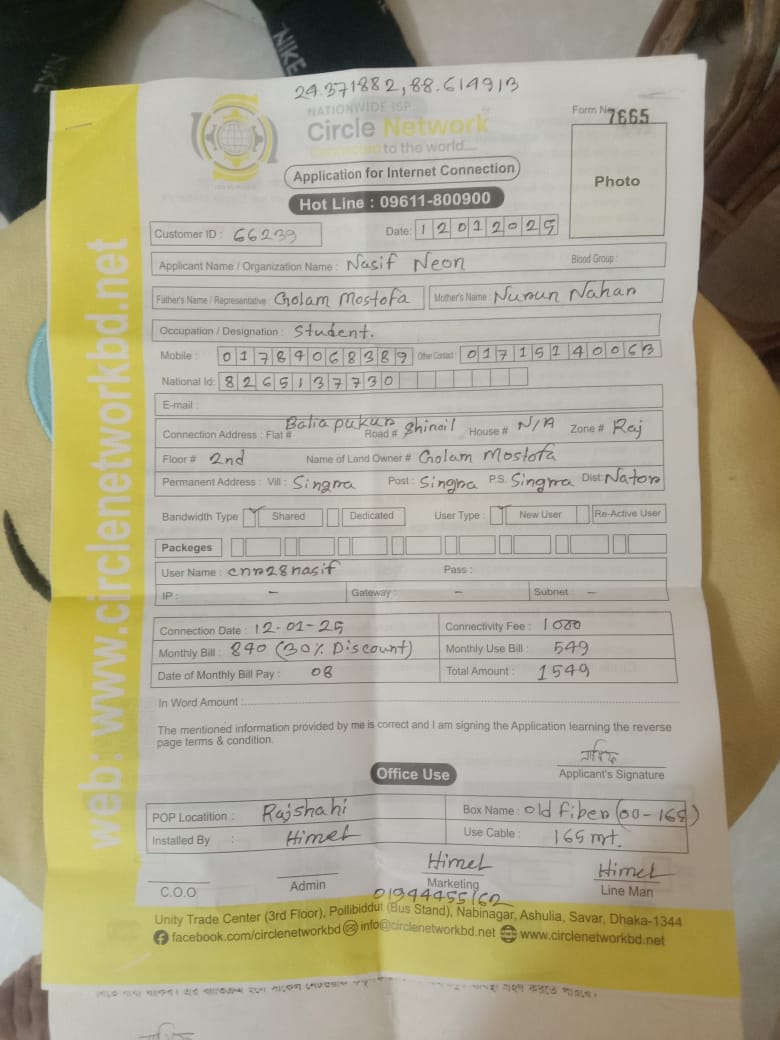 NIKE
NIKE
24.371882, 88.614913
NATIONWIDE ISP
Circle Network
connected to the world....
Form No 7665
Photo
Application for Internet Connection
Hot Line : 09611-800900
Customer ID : 66239
Date: 12012025
Applicant Name / Organization Name : Nasif Neon Blood Group :
Father's Name / Representative : Golam Mostofa Mother's Name : Nurun Nahar
Occupation / Designation : Student.
Mobile : 01784068389 Other Contact : 01715140063
National Id: 8265137730
E-mail :
Connection Address : Flat # Balia pukur Road # Shiroil House # N/A Zone # Raj
Floor # 2nd Name of Land Owner # Golam Mostofa
Permanent Address : Vill : Singra Post : Singra P.S. Singra Dist: Nator
Bandwidth Type Shared Dedicated User Type : New User Re-Active User
Packeges
User Name : cnr28nasif Pass :
IP : – Gateway : – Subnet –
Connection Date : 12-01-25 Connectivity Fee : 1000
Monthly Bill : 840 (30% Discount) Monthly Use Bill : 549
Date of Monthly Bill Pay : 08 Total Amount : 1549
In Word Amount :
The mentioned information provided by me is correct and I am signing the Application learning the reverse
page terms & condition.
নাসিফ
Applicant's Signature
Office Use
POP Locatition : Rajshahi Box Name : Old fiber (00-165)
Installed By : Himel Use Cable : 165 mt.
Himel Himel
C.O.O Admin Marketing Line Man
01944455162
Unity Trade Center (3rd Floor), Pollibiddut (Bus Stand), Nabinagar, Ashulia, Savar, Dhaka-1344
facebook.com/circlenetworkbd info@circlenetworkbd.net www.circlenetworkbd.net
web: www.circlenetworkbd.net